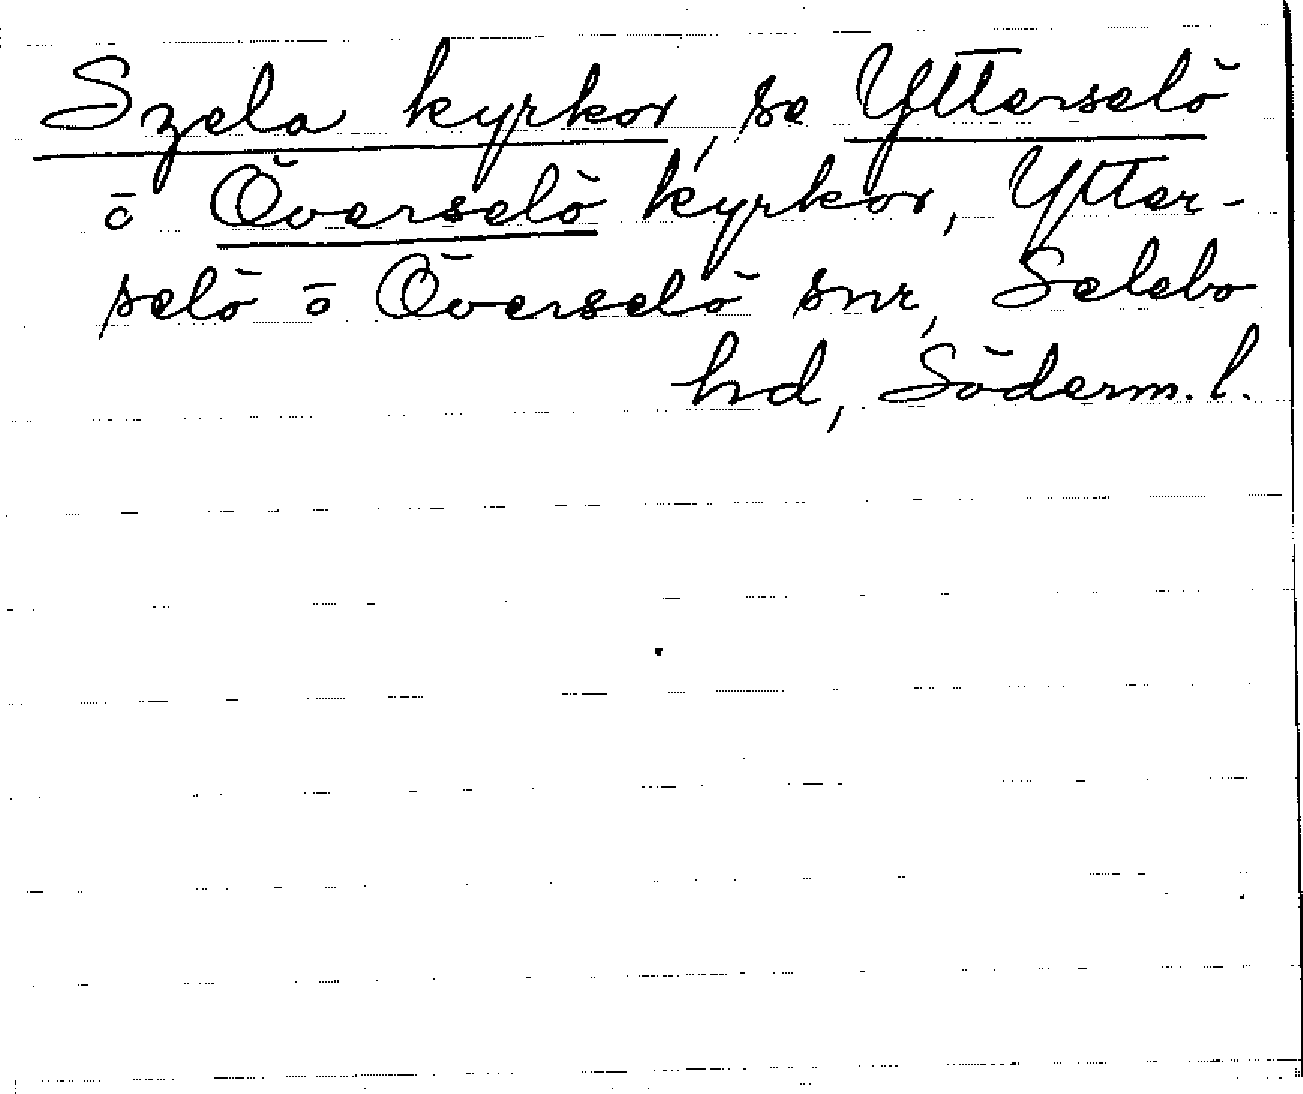 Szela kyrkor, se Ytterselö
o Överselö kyrkor, Ytter-
selö o Överselö snr, Selebo
hd, Söderm. l.